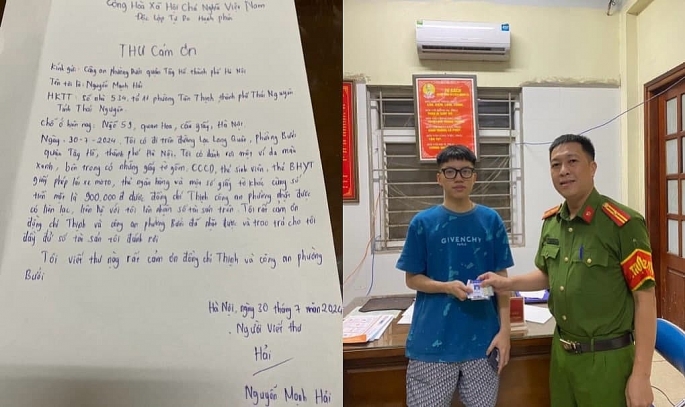 Cộng Hòa Xã Hội Chủ Nghĩa Việt Nam
Độc Lập Tự Do Hạnh phúc
THƯ CẢM ƠN
Kính gửi: Công an phường Bưởi quận Tây Hồ thành phố Hà Nội
Tên tôi là: Nguyễn Mạnh Hải
HKTT: Số nhà 534, tổ 11 phường Tân Thịnh, thành phố Thái Nguyên
Tỉnh Thái Nguyên.
Chỗ ở hiện nay: Ngõ 59, quan Hoa, Cầu giấy, Hà Nội
Ngày 30-7-2024, Tôi có đi trên đường Lạc Long Quân, Phường Bưởi
quận Tây Hồ, thành phố Hà Nội, Tôi có đánh rơi một ví da màu
xanh, bên trong có những giấy tờ gồm, CCCD, thẻ sinh viên, thẻ BHYT
giấy phép lái xe moto, thẻ ngân hàng và một số giấy tờ khác cùng số
tiền mặt là 900.000 đ được đồng chí Thịnh công an phường nhặt được
có liên lạc, liên hệ với tôi lên nhận số tài sản trên. Tôi rất cảm ơn
đồng chí Thịnh và công an phường Bưởi đã nhặt được và trao trả cho tôi
đầy đủ số tài sản tôi đánh rơi
Tôi viết thư này rất cảm ơn đồng chí Thịnh và công an phường
Bưởi
Hà Nội, ngày 30 tháng 7 năm 2024
Người viết thư
Hải
Nguyễn Mạnh Hải
GIVENCHY
PARIS